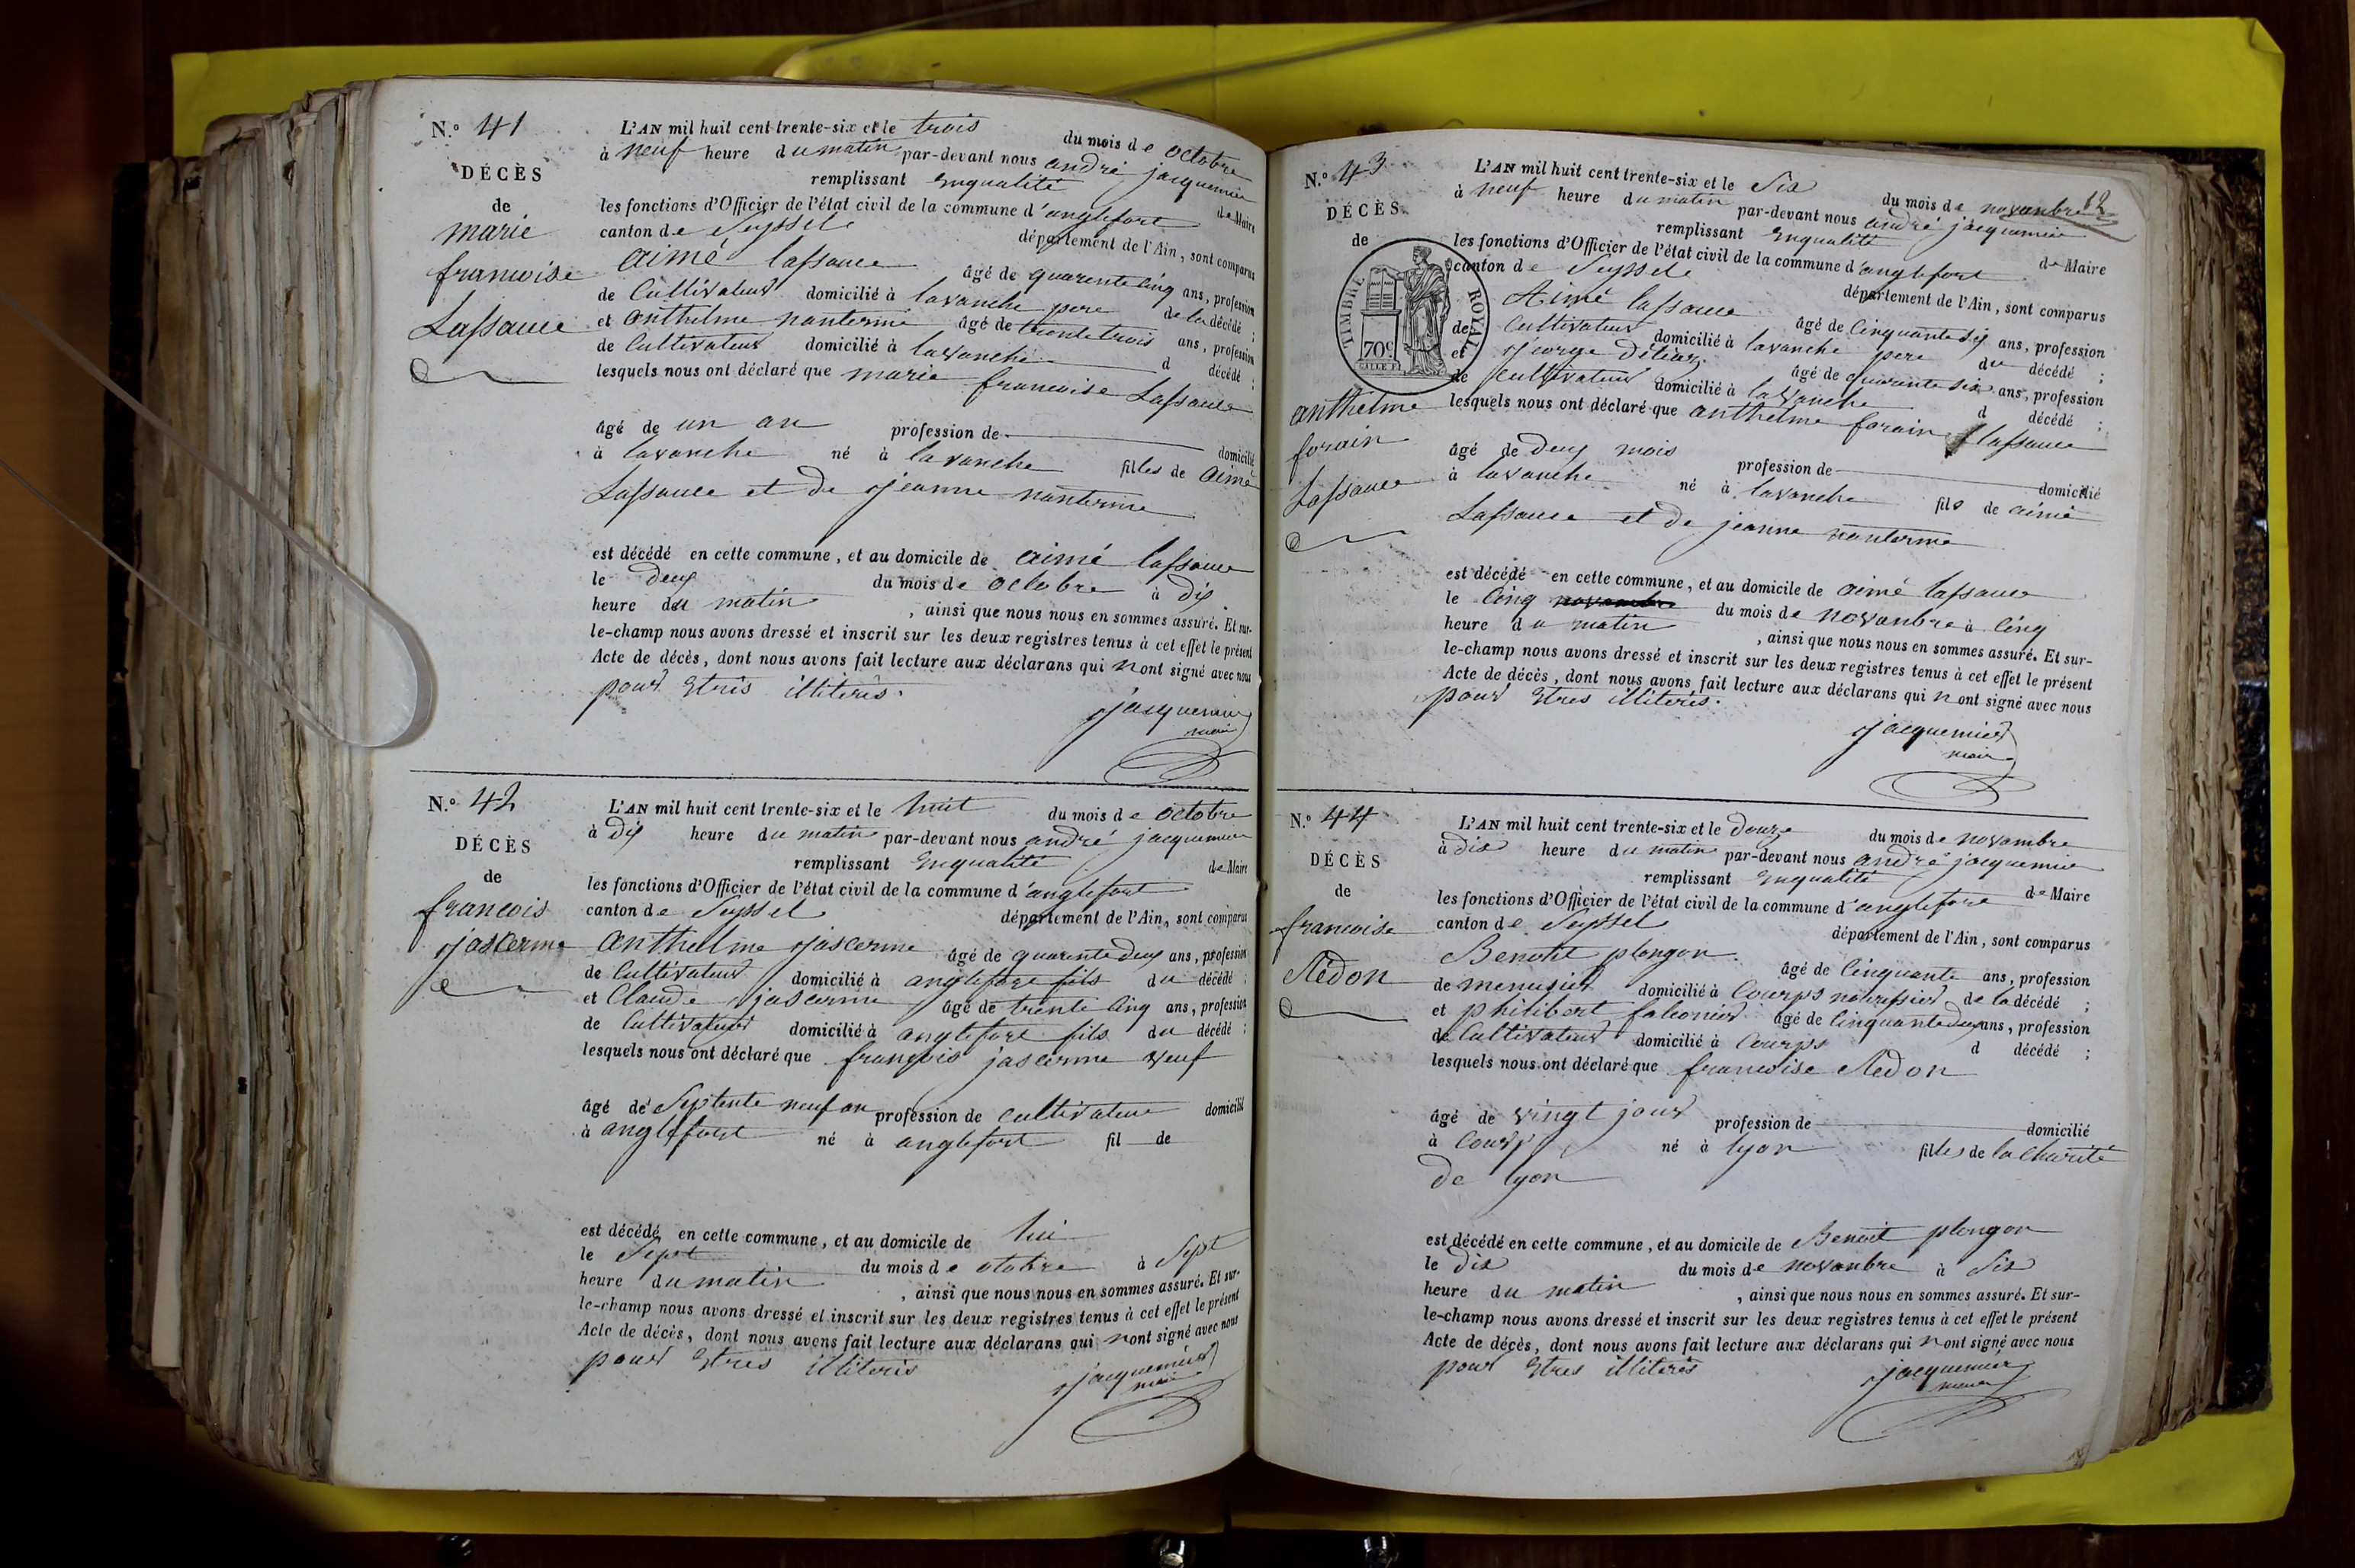 N.o 41
DÉCÈS
de
marie
francoise
Lassauce
L'AN mil huit cent trente-six et le trois du mois de octobre
à neuf heure du matin par-devant nous andré jacquemier
remplissant Enqualité de Maire
les fonctions d'Officier de l'état civil de la commune d'anglefort
canton de Seyssel département de l'Ain, sont comparus
aimé lassauce âgé de quarente cinq ans, profession
de Cultivateur domicilié à lavanche pere de la décédé ;
et anthelme nanterme âgé de trente trois ans, profession
de Cultivateur domicilié à lavanche d décédé ;
lesquels nous ont déclaré que marie francoise Lassauce
âgé de un an profession de domicilié
à lavanche né à lavanche filles de Aimé
Lassauce et de jeanne nanterme
est décédé en cette commune, et au domicile de aimé lassauce
le deux du mois de octobre à dix
heure du matin , ainsi que nous nous en sommes assuré. Et sur-
le-champ nous avons dressé et inscrit sur les deux registres tenus à cet effet le présent
Acte de décès, dont nous avons fait lecture aux déclarans qui nont signé avec nous
pour Etres illiterés.
jacquemier
maire
N.o 42
DÉCÈS
de
francois
jascerme
L'AN mil huit cent trente-six et le huit du mois de octobre
à dix heure du matin par-devant nous andré jacquemier
remplissant Enqualité de Maire
les fonctions d'Officier de l'état civil de la commune d'anglefort
canton de Seyssel département de l'Ain, sont comparus
anthelme jascerme âgé de quarente deux ans, profession
de Cultivateur domicilié à anglefort fils du décédé ;
et Claude jascerme âgé de trente cinq ans, profession
de Cultivateur domicilié à anglefort fils du décédé ;
lesquels nous ont déclaré que françois jascerme veuf
âgé de Septente neuf an profession de cultivateur domicilié
à anglefort né à anglefort fil de
est décédé en cette commune, et au domicile de lui
le Sept du mois de otobre à Sept
heure du matin , ainsi que nous nous en sommes assuré. Et sur-
le-champ nous avons dressé et inscrit sur les deux registres tenus à cet effet le présent
Acte de décès, dont nous avons fait lecture aux déclarans qui nont signé avec nous
pour Etres illiterés
jacquemier
maire
12
N.o 43
DÉCÈS
de
TIMBRE ROYAL
70c
anthelme
forain
Lassauce
L'AN mil huit cent trente-six et le Six du mois de novanbre
à neuf heure du matin par-devant nous andré jacquemier
remplissant Enqualité de Maire
les fonctions d'Officier de l'état civil de la commune d'anglefort
canton de Seyssele département de l'Ain, sont comparus
Aimé lassauce âgé de Cinquante six ans, profession
de Cultivateur domicilié à lavanche pere du décédé ;
et george âgé de quarente six ans, profession
de Cultivateur domicilié à lavanche d décédé ;
lesquels nous ont déclaré que anthelme forain lassauce
âgé de deux mois profession de domicilié
à lavanche né à lavanche fils de aimé
Lassauce et de jeanne nanterme
est décédé en cette commune, et au domicile de aimé lassauce
le Cinq novanbre du mois de novanbre à Cinq
heure du matin , ainsi que nous nous en sommes assuré. Et sur-
le-champ nous avons dressé et inscrit sur les deux registres tenus à cet effet le présent
Acte de décès, dont nous avons fait lecture aux déclarans qui nont signé avec nous
pour Etres illiterés.
jacquemier
maire
N.o 44
DÉCÈS
de
francoise
Redon
L'AN mil huit cent trente-six et le douze du mois de novambre
à dix heure du matin par-devant nous andré jacquemier
remplissant Enqualité de Maire
les fonctions d'Officier de l'état civil de la commune d'anglefort
canton de Seyssel département de l'Ain, sont comparus
Benoit plongon âgé de Cinquante ans, profession
de menusier domicilié à Courps nourissier de la décédé ;
et philibert falconier âgé de Cinquante deux ans, profession
de Cultivateur domicilié à Courps d décédé ;
lesquels nous ont déclaré que francoise Redon
âgé de vingt jour profession de domicilié
à Courps né à lyon filles de la Charité
de lyon
est décédé en cette commune, et au domicile de Benoit plongon
le dix du mois de novanbre à Six
heure du matin , ainsi que nous nous en sommes assuré. Et sur-
le-champ nous avons dressé et inscrit sur les deux registres tenus à cet effet le présent
Acte de décès, dont nous avons fait lecture aux déclarans qui nont signé avec nous
pour Etres illiterés
jacquemier
maire